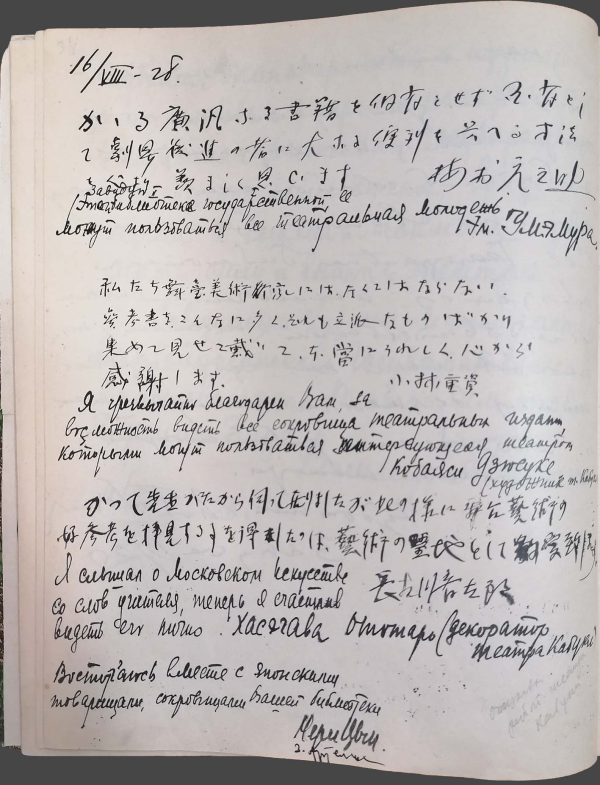 16/VIII - 28.
かゝる廣汎なる書籍を個有とせず公有とし
て劇界後進の者に大なる便利を與へる方法
羨ましく思ひます
Завидую
библиотека государственной, ею
могут пользоваться вся театральная молодежь
Умэмура.
私たち舞臺美術家には、なくてはならない、
参考書を、こんなに多く、それも立派なものばかり
集めて見せて戴いて、本當にうれしく、心から
感謝します。 小林重資
Я чрезвычайно благодарен Вам, за
возможность видеть все сокровища театральных изданий
которыми могут пользоваться интересующиеся театром
Кобаяси Дзюске
(художник т. Кабуки
かつて先生がたから伺って居りましたが此の様に舞台藝術の
好参考を拝見する事を得ましたのは、藝術の聖地として
Я слышал о Московском искусстве
со слов учителя, теперь я счастлив
長谷川音
видеть его лично. Хасягава Ототаро (декоратор
театра Кабуки)
Восторгаюсь вместе с японскими
товарищами, сокровищами Вашей библиотеки